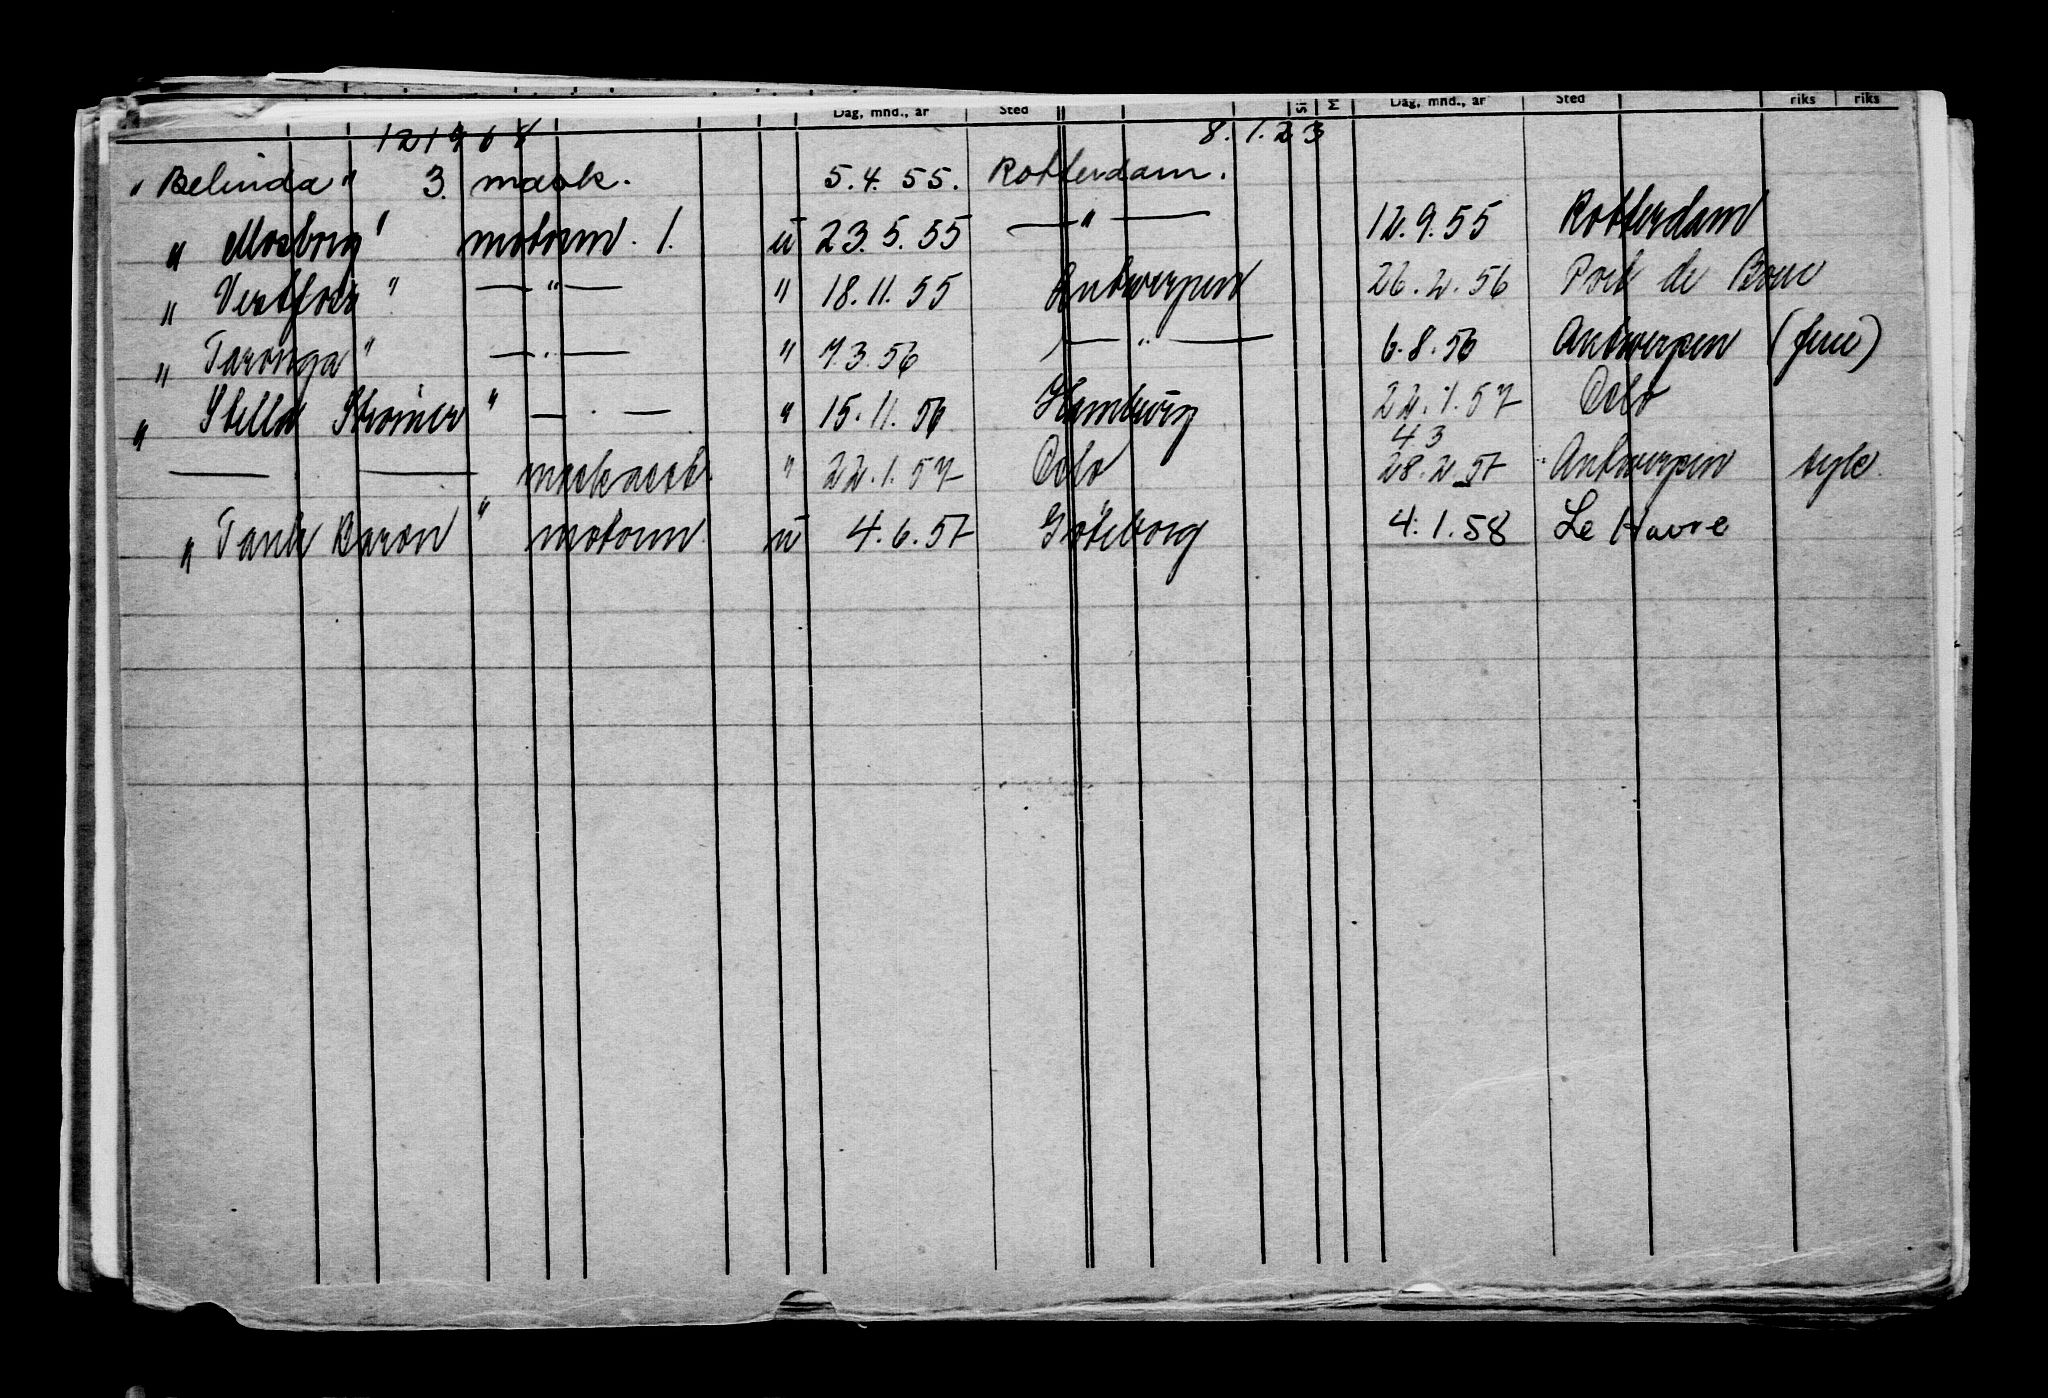 Dag, mnd., år Sted SI M Dag, mnd., år Sted riks riks
121968 8.1.23
" Belinda " 3. mask. 5.4.55. Rotterdam.
" Mosborg " motorm. 1. u 23.5.55 — " — 12.9.55 Rotterdam
" Vestfoss " — " — " 18.11.55 Antwerpen 26.2.56 Port de Bouc
" Taronga " — " — " 7.3.56 — " — 6.8.56 Antwerpen
" Stella Steiner " — " — " 15.11.56 Hamburg 22.1.57 Oslo
4 3
— — maskasst. " 22.1.57 Oslo 28.2.57 Antwerpen syk.
" Tank Baron " motorm. u 4.6.57 Göteborg 4.1.58 Le Havre